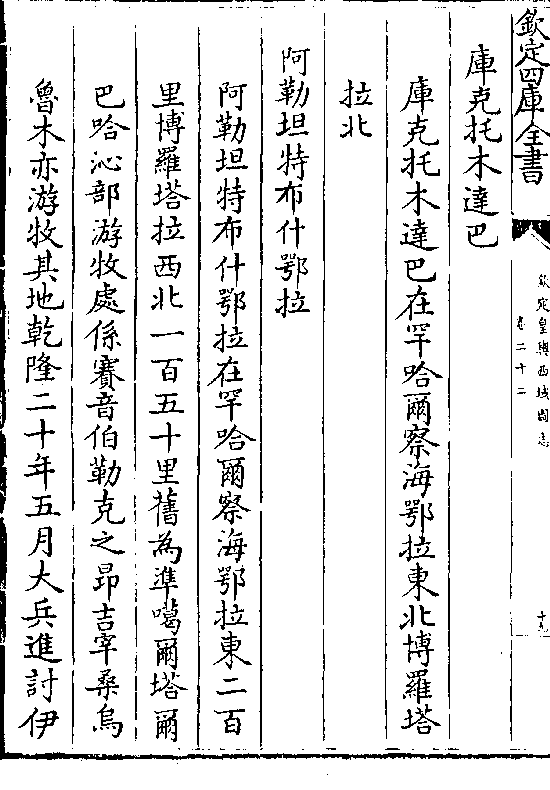 欽定四庫全書
欽定皇輿西域圖志
卷二十二
十九
庫克托木達巴
庫克托木達巴在罕哈爾察海鄂拉東北博羅塔
拉北
阿勒坦特布什鄂拉
阿勒坦特布什鄂拉在罕哈爾察海鄂拉東二百
里博羅塔拉西北一百五十里舊為準噶爾塔爾
巴哈沁部游牧處係賽音伯勒克之昂吉宰桑烏
魯木亦游牧其地乾隆二十年五月大兵進討伊